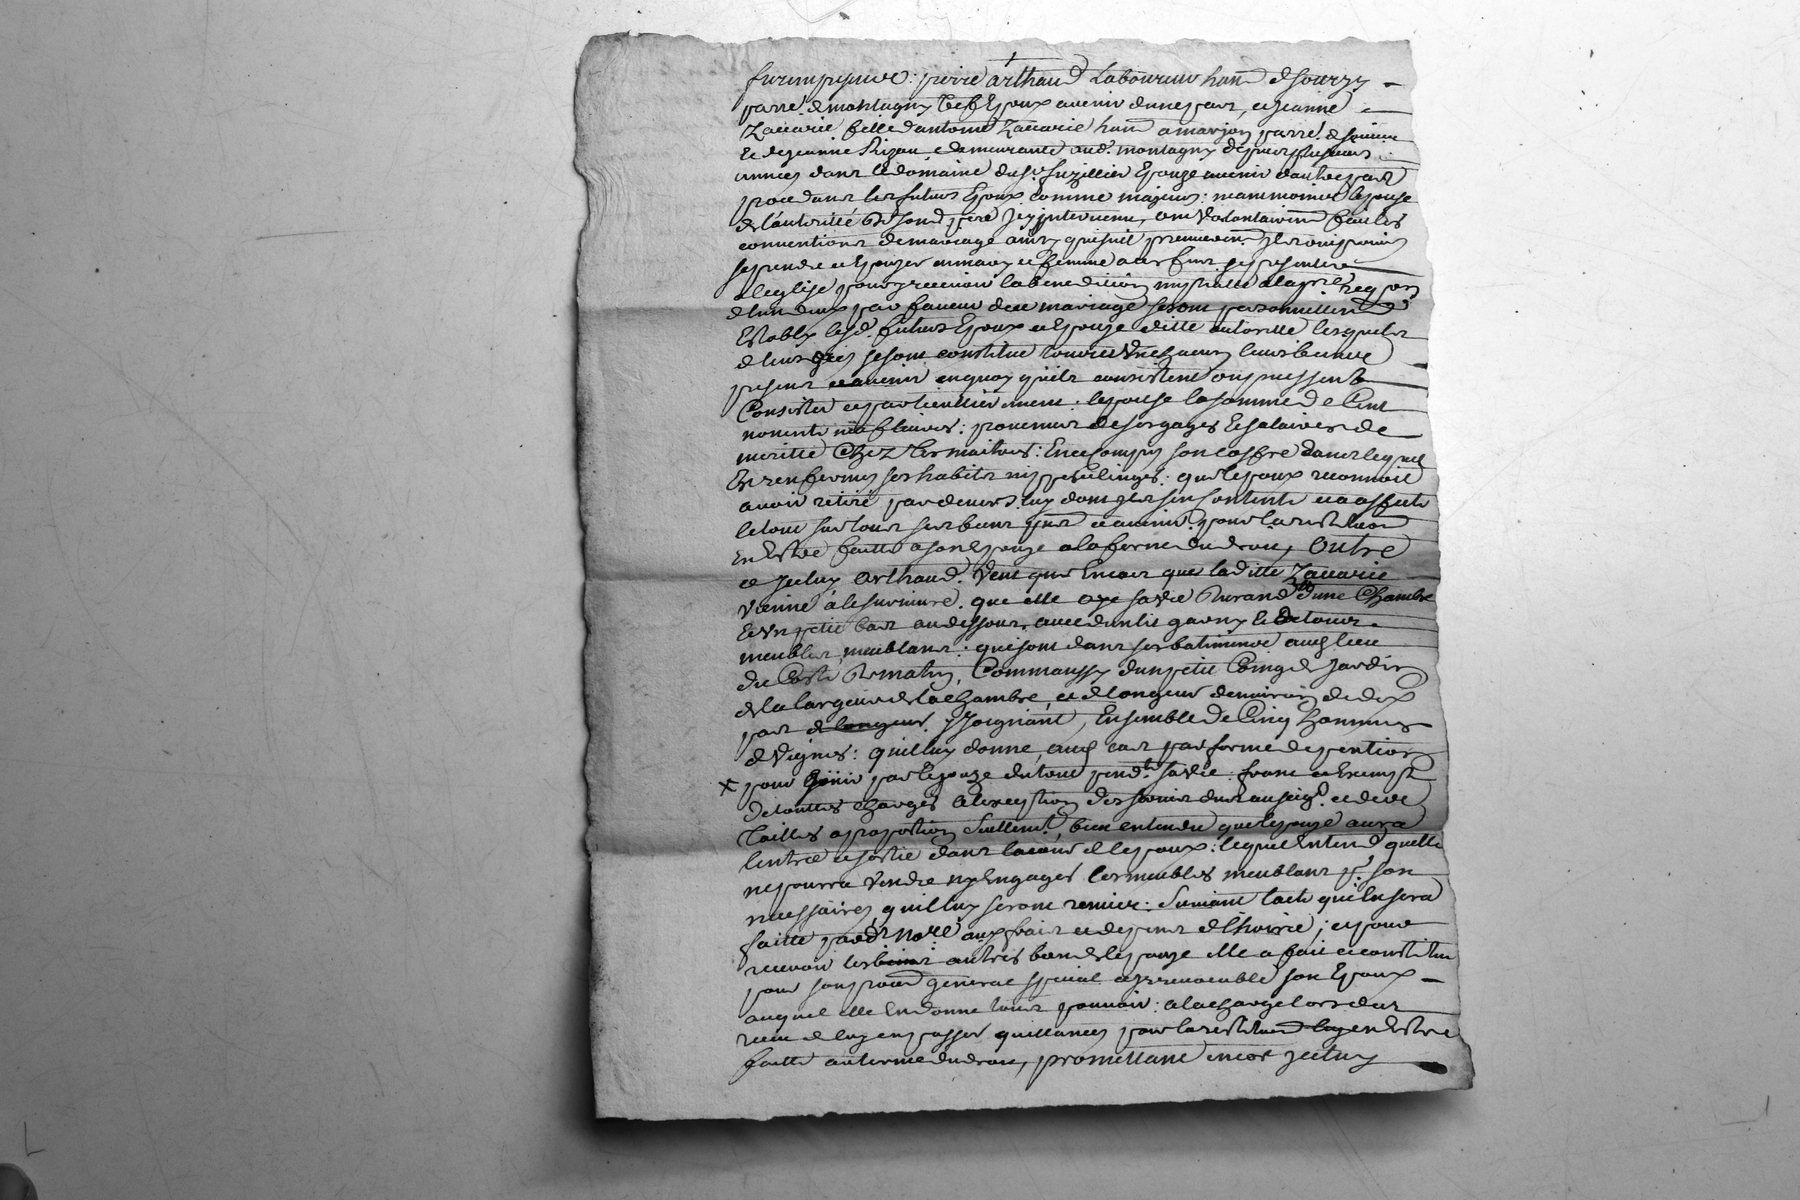 furent presents: pierre arthaud Laboureur habt d sourzy
parre de montagny Lesd Epoux avenir d'une part, et jeanne
Zacarie fille d'antoine Zacarie habt a marjon parre. de
Et de jeanne Rizan, demeurante aud. montagny depuis plusieurs
années dans le domaine du sr. fuzillier Epouze avenir d'autre part
procedans lesd futurs Epoux comme majeurs: neanmoins lepouse
de l'autorité de sond pere jcy intervenu, ont volontairemt fait les
conventions de mariage ainsy que suit premierement. ils ont promis
se prendre et Epouzer en mary et femme a ces fins se presenter
a l'eglise pour y recevoir la benediction nuptialle a la pre. reqon
de l'un deux par faveur duc mariage se sont personnellemt
Establis lesd. futurs Epoux et Epouze ditte autorité lesquels
de leurs grés se sont constitué tous et un chacuns leurs biens
presens et avenir en quoy qu'ils consistent ou puissent
Consister et particullierement: lepouse la somme de Cent
nonente neuf livres: provenues de ses gages Et salaires de
merite Chez Les maitres: En ce compris son coffre dans lequel
Est renfermés ses habits nippes et linges: que lepoux reconnoit
avoir retiré par devers luy dont il s'en contente et a affecté
le tout sur tous ses biens pnts et avenir. pour la restitution
En Estre faitte a son Epouze a la forme du droit, Outre
ce jceluy Arthaud. Veut que En cas que laditte Zacarie
Vienne à le survivre. que elle aye sa vie durand d'une Chambre
Et un petit bas au dessous, avec d'un lit garny Et de tous
meubles meublans: qui sont dans ses batimens aud lieu
du Coste du matin, Comm'aussy d'un petit Coing de Jardin
de la largeur de la chambre, et de longeur d'environ de dix
pas de longeur y Joignant, Ensemble de Cinq hommées
de Vignes: qu'il luy donne, aud cas par forme de pention
x pour Jouir par lepouze du tout pendt. sa vie: franc et Exempt
De touttes charges a l'exeption des servis dus au seigr. et de
Tailles a proportion Seullemt, bien entendu que lepouze aura
lentrée et sortie dans la cour de lepoux: lequel Entend quelle
ne pourra Vendre ny Engager les meubles meublans pr. son
necessaires, qu'il luy seront remies: Suivant l'acte qu'il en sera
faitte pardt. Nore aux frais et depens de lhoirie; et pour
recevoir les biens autres biens de lepouze elle a fait et constitué
pour son procur general special et jrrevocable son Epoux
auquel elle En donne tous pouvoir: a la charge lors des
receu de luy en passer quittances pour la restitution luy en Estre
faitte au terme du droit, promettant encor jceluy